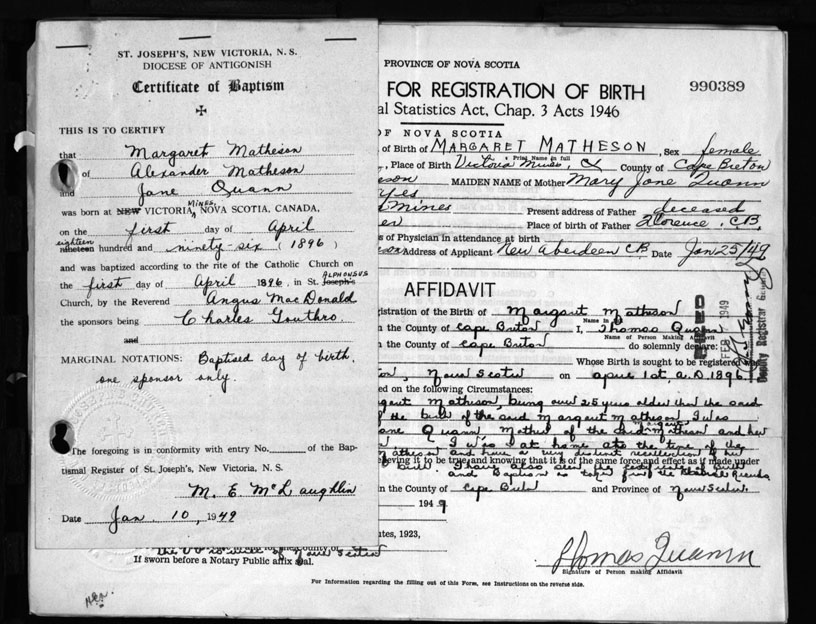 ST. JOSEPH'S, NEW VICTORIA, N. S.
DIOCESE OF ANTIGONISH
Certificate of Baptism
THIS IS TO CERTIFY
that Margaret Matheson
of Alexander Matheson
and Jane Quann
was born at NEW VICTORIA MINES, NOVA SCOTIA, CANADA,
on the first day of April
eighteen
nineteen hundred and ninety-six (1896)
and was baptized according to the rite of the Catholic Church on
the first day of April 1896, in St. Joseph's ALPHONSUS
Church, by the Reverend Angus MacDonald
the sponsors being Charles Gouthro.
and
MARGINAL NOTATIONS: Baptised day of birth,
one sponsor only.
The foregoing is in conformity with entry No. of the Bap-
tismal Register of St. Joseph's, New Victoria, N. S.
M. E. McLaughlin
Date Jan. 10, 1949
PROVINCE OF NOVA SCOTIA
FOR REGISTRATION OF BIRTH
990389
al Statistics Act, Chap. 3 Acts 1946
OF NOVA SCOTIA
of Birth of MARGARET MATHESON, Sex female
Print Name in full
, Place of Birth Victoria Mines, County of Cape Breton
eson MAIDEN NAME of Mother Mary Jane Quann
yes
Mines Present address of Father deceased
er Place of birth of Father Florence, C.B.
s of Physician in attendance at birth
Address of Applicant New Aberdeen C B Date Jan 25/49
AFFIDAVIT
istration of the Birth of Margaret Matheson
Name in full
n the County of Cape Breton I, Thomas Quann
Name of Person Making Affidavit
n the County of Cape Breton do solemnly declare:
Whose Birth is sought to be registered was
on, Nova Scotia on April 1st, A.D. 1896.
ed on the following Circumstances:
aret Matheson, being over 25 years older than the said
of the birth of the said Margaret Matheson I was
ane Quann Mother of the said Margaret Matheson and her
I was at home at the time of the
Matheson and have a very distinct recollection of her
elieving it to be true and knowing that it is of the same force and effect as if made under
birth I have also seen the certificate of Birth
and Baptism as taken from the Records
n the County of Cape Breton and Province of Nova Scotia.
1949
FEB 1949
Deputy Registrar General
utes, 1923,
for the County of
of Nova Scotia
If sworn before a Notary Public affix seal.
Thomas Quann
Signature of Person making Affidavit
For Information regarding the filling out of this Form, see Instructions on the reverse side.